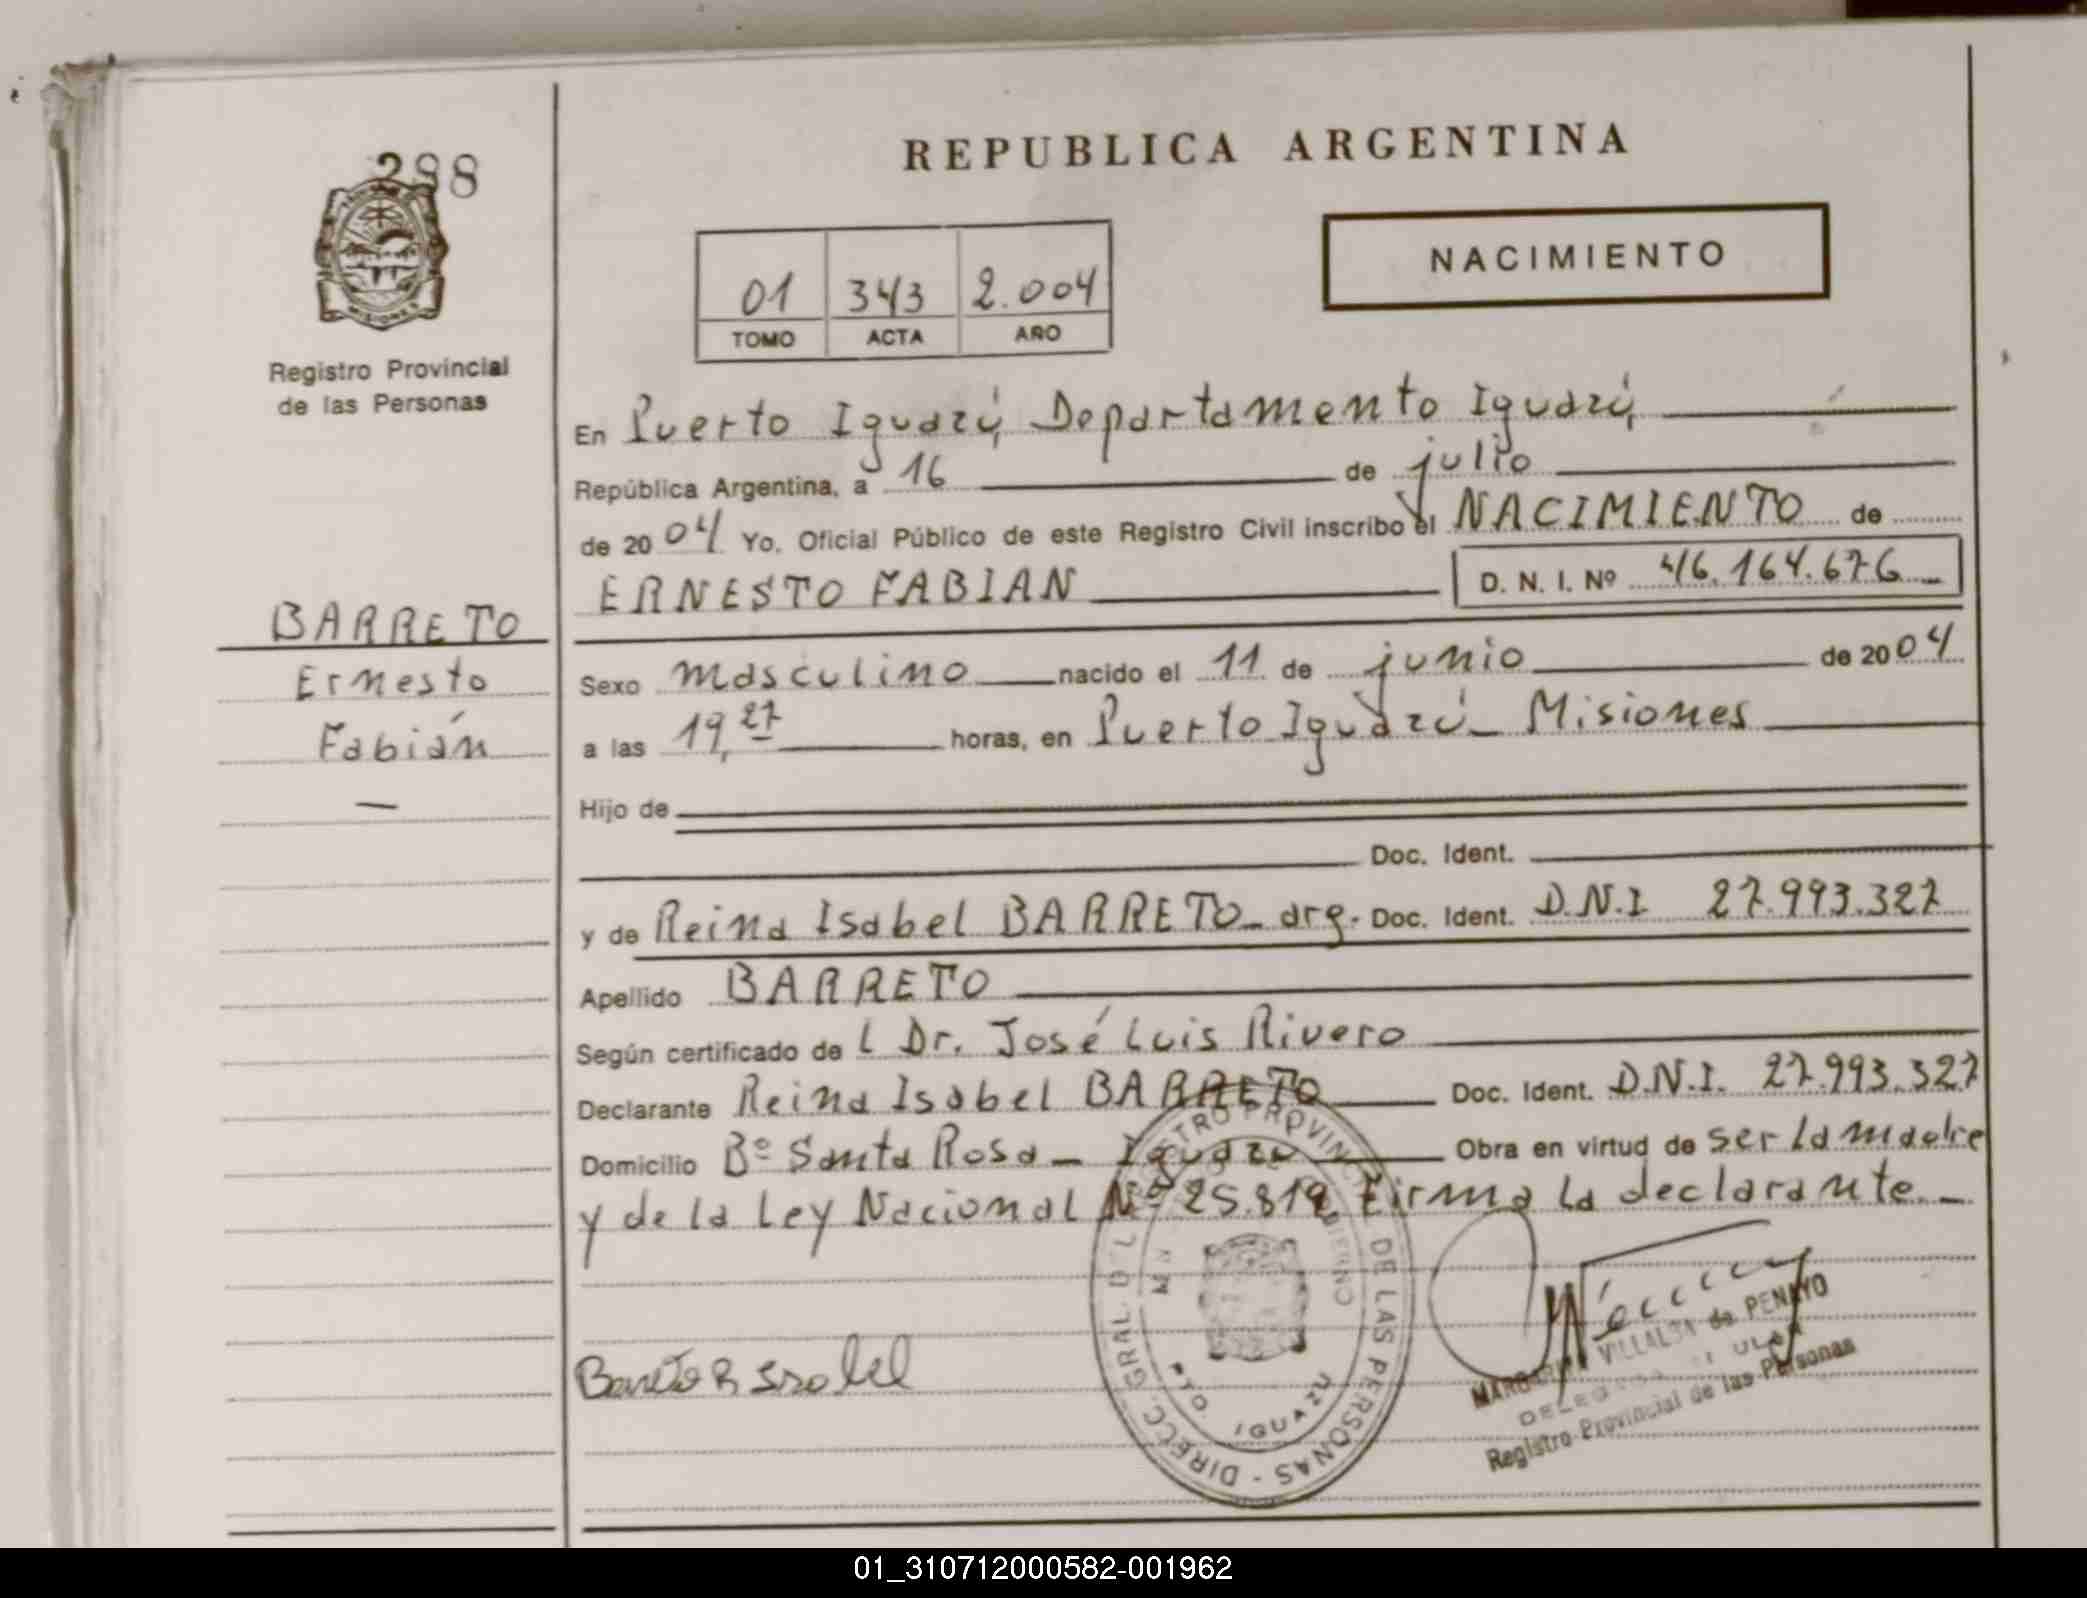 288
REPUBLICA ARGENTINA
NACIMIENTO
01 343 2.004
TOMO ACTA AÑO
MISIONES
Registro Provincial
de las Personas
En Puerto Iguazú, Departamento Iguazú,
República Argentina, a 16 de julio
de 2004 Yo, Oficial Público de este Registro Civil inscribo el NACIMIENTO de
ERNESTO FABIAN D. N. I. Nº 46.164.676
BARRETO
Ernesto
Fabián
Sexo masculino nacido el 11 de junio de 2004
a las 19,27 horas, en Puerto Iguazú - Misiones
Hijo de
Doc. Ident.
y de Reina Isabel BARRETO - arg. Doc. Ident. D.N.I 27.993.327
Apellido BARRETO
Según certificado de l Dr. José Luis Rivero
Declarante Reina Isabel BARRETO Doc. Ident. D.N.I. 27.993.327
Domicilio Bº Santa Rosa - Iguazú Obra en virtud de ser la madre
y de la Ley Nacional Nº 25.819 Firma la declarante -
Barreto R Isabel
DIRECC. GRAL. DEL REGISTRO PROVINCIAL DE LAS PERSONAS -
GOBIERNO
PTO. IGUAZU
MARGARITA VILLALBA de PENAYO
DELEGADA TITULAR
Registro Provincial de las Personas
01_310712000582-001962